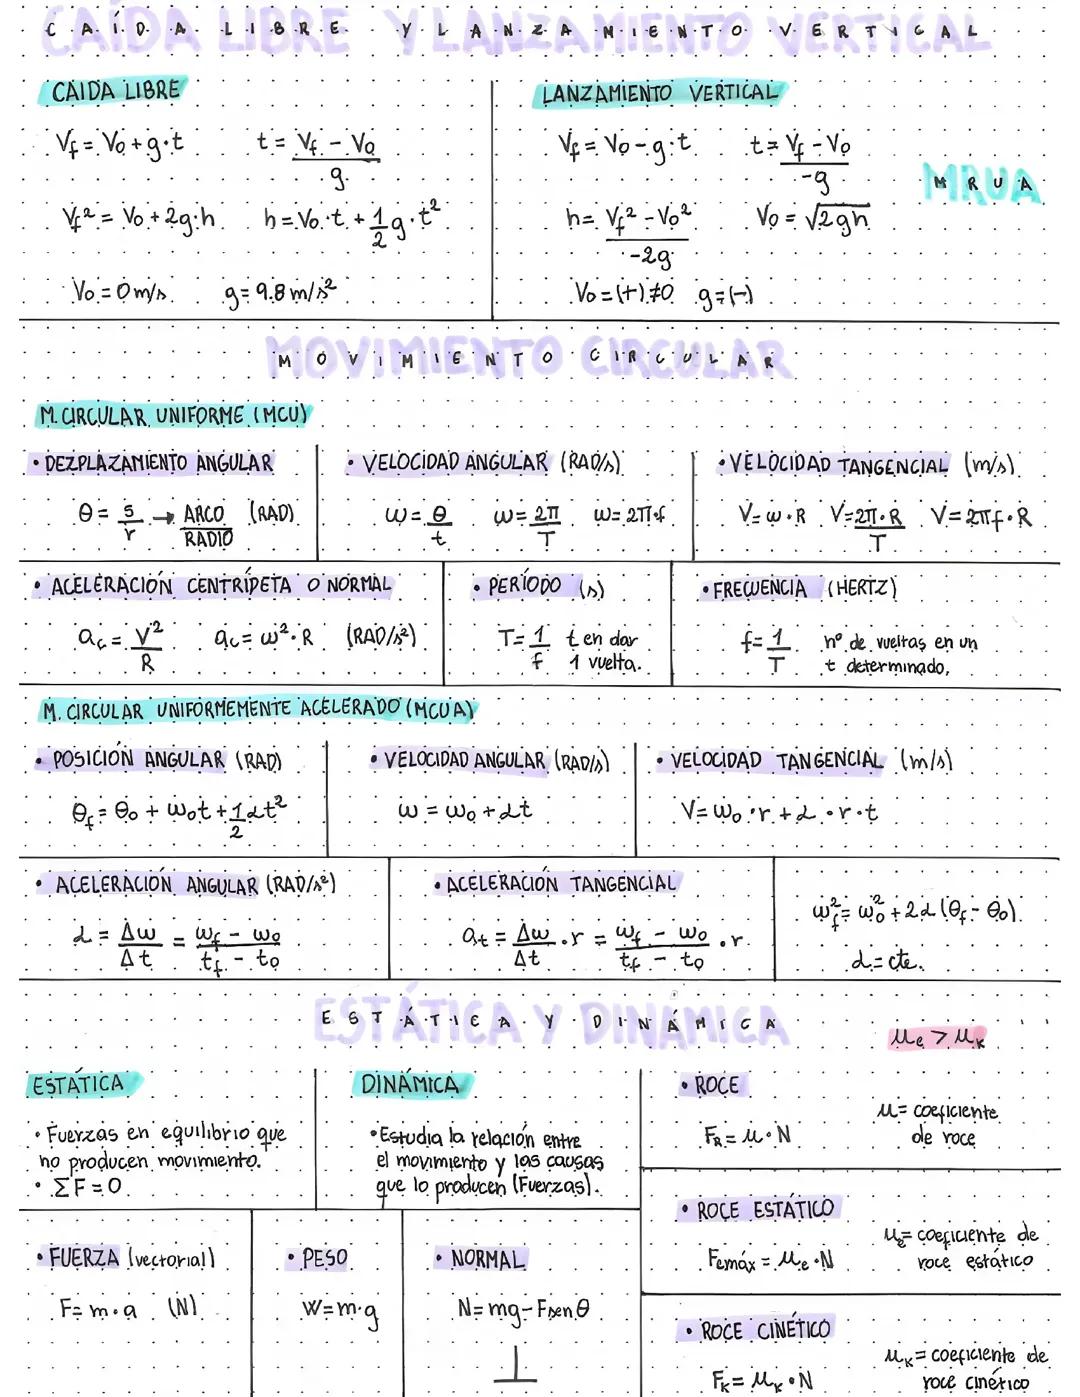 CAÍDA LIBRE Y LANZAMIENTO VERTICAL
CAIDA LIBRE
Vf = Vo + g·t
t = Vf - Vo / g
Vf² = Vo + 2g·h
h = Vo·t + 1/2 g·t²
Vo = 0 m/s
g = 9.8 m/s²
LANZAMIENTO VERTICAL
Vf = Vo - g·t
t = Vf - Vo / -g
MRUA
h = Vf² - Vo² / -2g
Vo = √2gh
Vo = (+) ≠ 0 g = (-)
MOVIMIENTO CIRCULAR
M. CIRCULAR UNIFORME (MCU)
• DEZPLAZAMIENTO ANGULAR
θ = s/r → ARCO/RADIO (RAD)
• VELOCIDAD ANGULAR (RAD/s)
ω = θ/t ω = 2π/T ω = 2π·f
• VELOCIDAD TANGENCIAL (m/s)
V = ω·R V = 2π·R/T V = 2πf·R
• ACELERACIÓN CENTRÍPETA O NORMAL
ac = V²/R ac = ω²·R (RAD/s²)
• PERÍODO (s)
T = 1/f t en dar
1 vuelta.
• FRECUENCIA (HERTZ)
f = 1/T nº de vueltas en un
t determinado.
M. CIRCULAR UNIFORMEMENTE ACELERADO (MCUA)
• POSICIÓN ANGULAR (RAD)
θf = θo + ωot + 1/2 αt²
• VELOCIDAD ANGULAR (RAD/s)
ω = ωo + αt
• VELOCIDAD TANGENCIAL (m/s)
V = ωo·r + α·r·t
• ACELERACIÓN ANGULAR (RAD/s²)
α = Δω/Δt = ωf - ωo / tf - to
• ACELERACIÓN TANGENCIAL
at = Δω/Δt ·r = ωf - ωo / tf - to ·r
ωf² = ωo² + 2α(θf - θo)
α = cte.
ESTÁTICA Y DINÁMICA
μe > μk
ESTÁTICA
• Fuerzas en equilibrio que
no producen movimiento.
• ΣF = 0
DINÁMICA
• Estudia la relación entre
el movimiento y las causas
que lo producen (Fuerzas).
• ROCE
FR = μ·N
μ = coeficiente
de roce
• ROCE ESTÁTICO
Femáx = μe·N
μe = coeficiente de
roce estático
• FUERZA (vectorial)
F = m·a (N)
• PESO
W = m·g
• NORMAL
N = mg - Fsenθ
⊥
• ROCE CINÉTICO
FK = μK·N
μK = coeficiente de
roce cinético